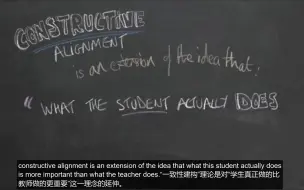 CONSTRUCTIVE
ALIGNMENT
is an extension of the idea that:
"WHAT THE STUDENT ACTUALLY DOES
constructive alignment is an extension of the idea that what this student actually does
is more important than what the teacher does."一致性建构"理论是对"学生真正做的比
教师做的更重要"这一理念的延伸。